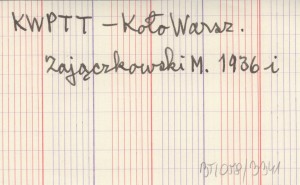 KWPTT – Koło Warsz.
Zajączkowski M. 1936 i
BJ/058/3341